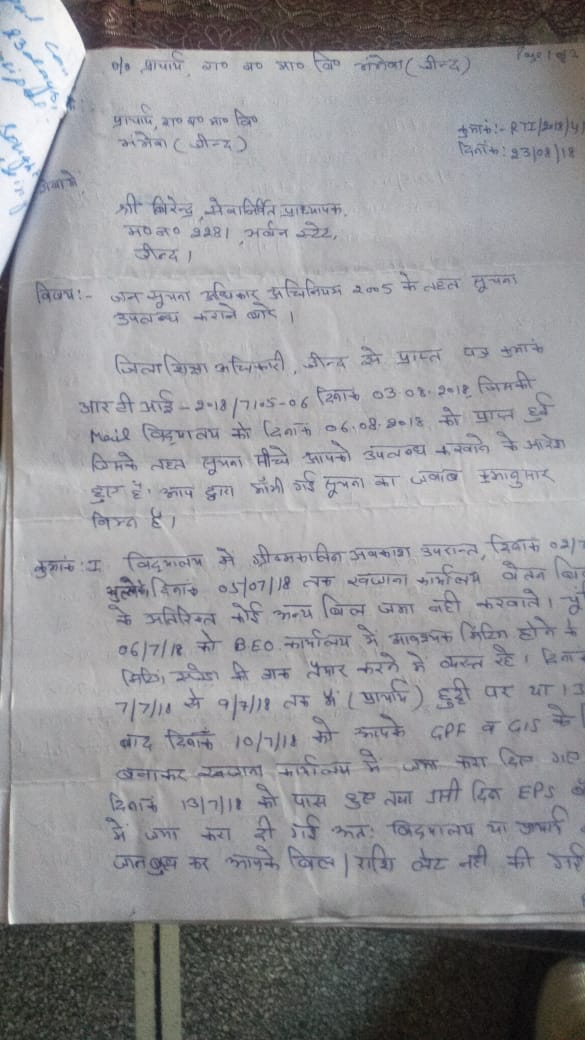 O/o प्राचार्य, रा० व० मा० वि० (जीन्द)
प्राचार्य, रा० व० मा० वि०
(जीन्द)
क्रमांक:- RTI/2018/
दिनांक: 23/08/18
सेवा में,
श्री विरेन्द्र, सेवानिर्वित प्राध्यापक,
म० न० 2281, अर्बन स्टेट,
जीन्द।
विषय:- जन सूचना अधिकार अधिनियम 2005 के तहत सूचना
उपलब्ध कराने बारे।
जिला शिक्षा अधिकारी, जीन्द से प्राप्त पत्र क्रमांक
आर टी आई - 2018/7105-06 दिनांक 03.08.2018 जिसकी
Mail विद्यालय को दिनांक 06.08.2018 को प्राप्त हुई
जिसके तहत सूचना नीचे आपको उपलब्ध करवाने के आदेश
हुए है। आप द्वारा माँगी गई सूचना का जवाब क्रमानुसार
निम्न है।
क्रमांक: I विद्यालय में ग्रीष्मकालिन अवकाश उपरान्त, दिनांक 02/7
दिनांक 05/07/18 तक खजाना कार्यालय वेतन बिल
के अतिरिक्त कोई अन्य बिल जमा नहीं करवाते।
06/7/18 को BEO कार्यालय में आवश्यक मिटिंग होने के
मिटिंग की डाक तैयार करने में व्यस्त रहे। दिनांक
7/7/18 से 9/7/18 तक मैं (प्राचार्य) छुट्टी पर था।
बाद दिनांक 10/7/18 को आपके GPF व GIS के
बनाकर खजाना कार्यालय में जमा करा दिए गए
दिनांक 13/7/18 को पास हुए तथा उसी दिन EPS
में जमा करा दी गई अतः विद्यालय या प्राचार्य
जानबूझ कर आपके बिल / राशि लेट नहीं की गई